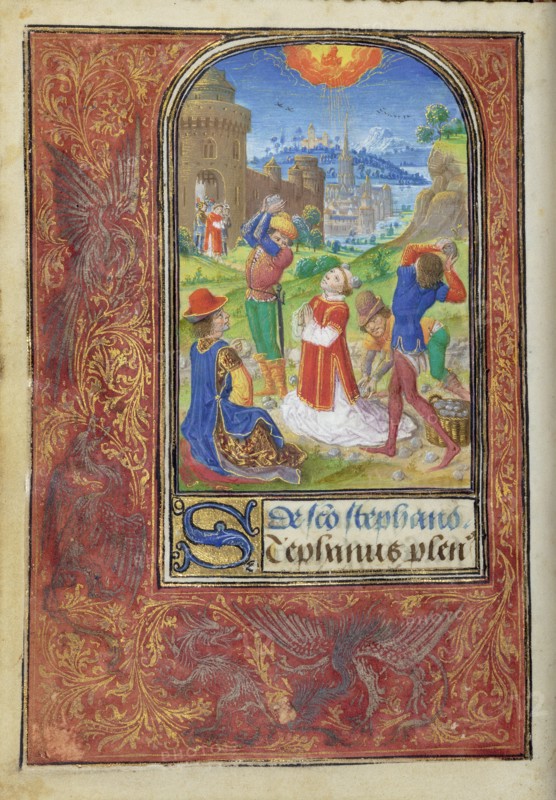 De sco stephano.
Stephanus plen⁹